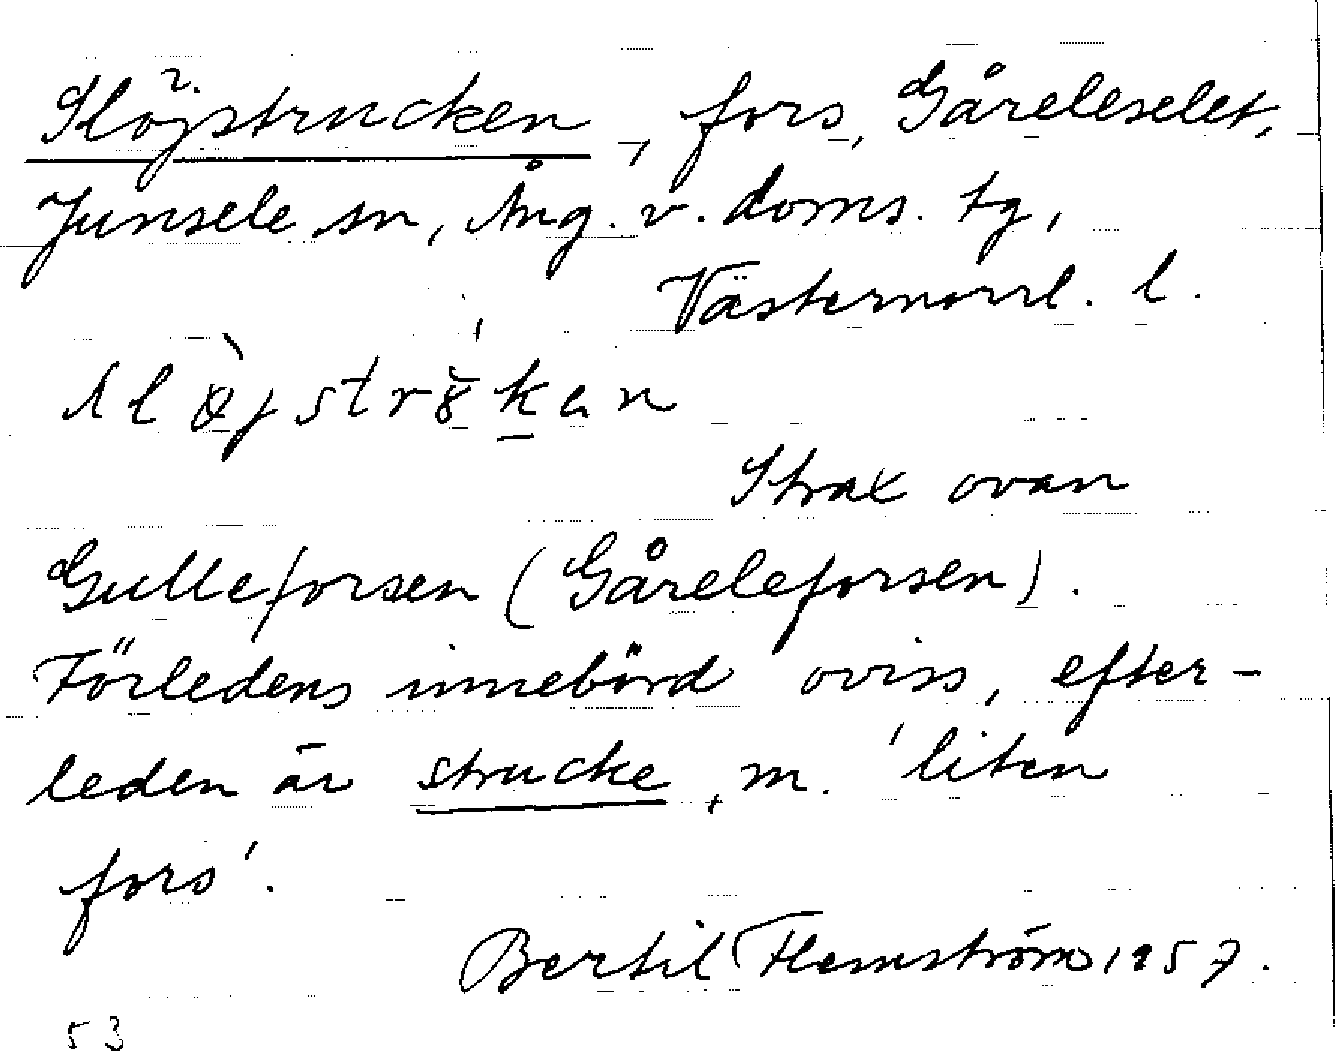 Slöjstrucken, fors, Gåreleselet,
Junsele sn, Ång. v. doms. tg,
Västernorrl. l.
Strax ovan
Gulleforsen (Gåreleforsen).
Förledens innebörd oviss, efter-
leden är strucke, m. 'liten
fors'.
Bertil Flemström 1957.
53